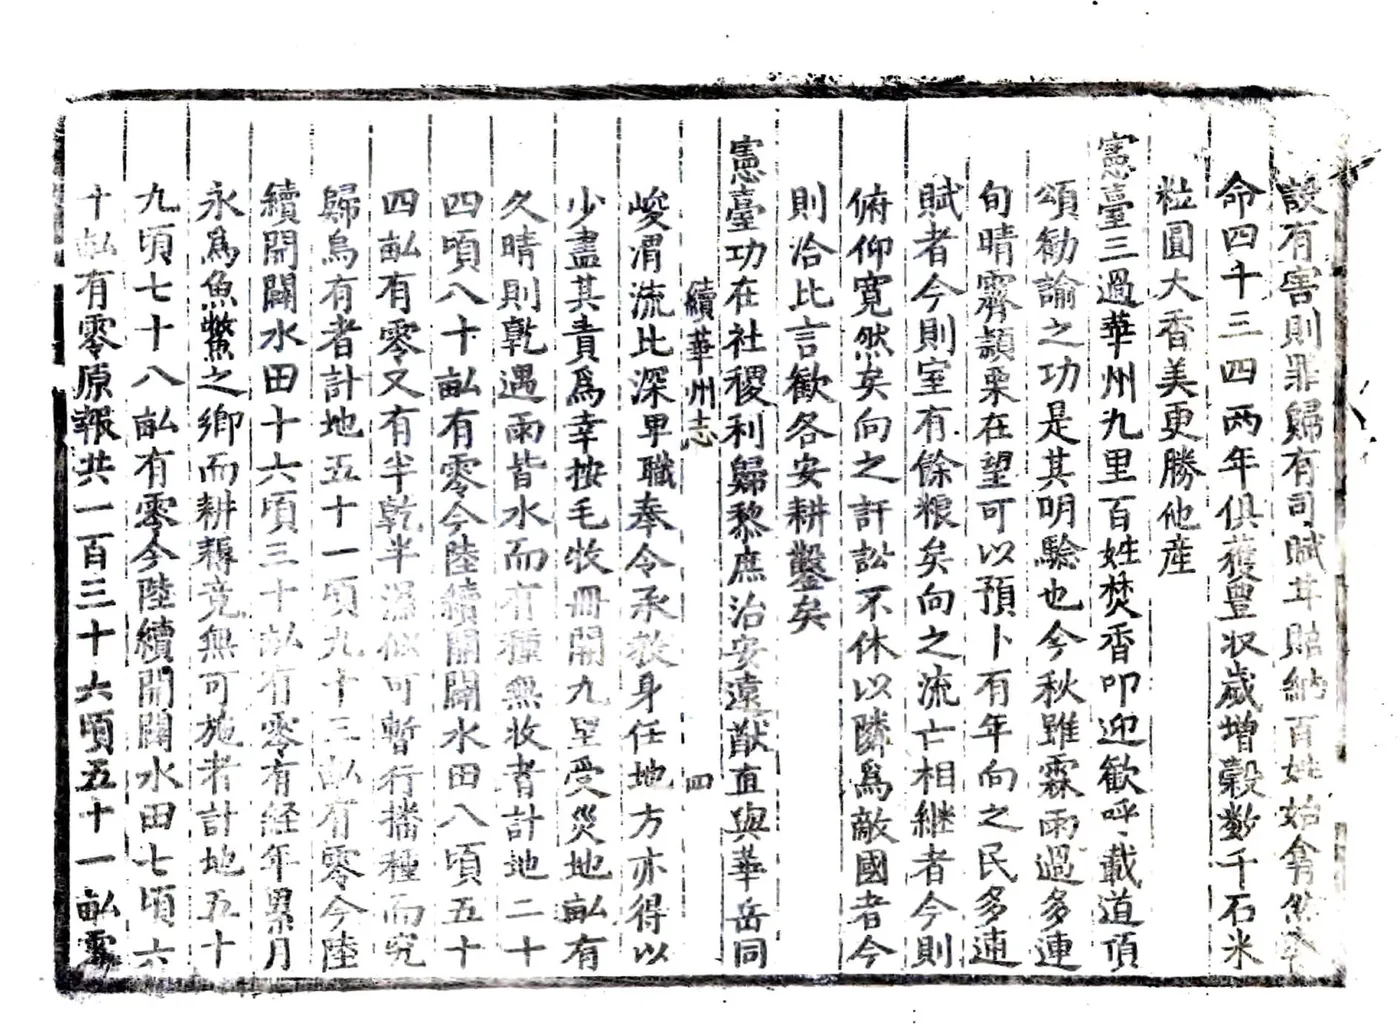 設有害則罪歸有司賦並貼納百姓始翕然
命四十三四兩年俱獲豊收歲增穀數千石米
粒圓大香美更勝他産
憲臺三過華州九里百姓焚香叩迎歡呼載道頂
頌勸諭之功是其明驗也今秋雖霖雨過多連
旬晴霽頴栗在望可以預卜有年向之民多逋
賦者今則室有餘糧矣向之流亡相継者今則
俯仰寛然矣向之訐訟不休以隣爲敵國者今
則洽比言歡各安耕鑿矣
憲臺功在社稷利歸黎庶治安遠猷直與華岳同
續華州志
四
峻渭流比深卑職奉令承教身任地方亦得以
少盡其責爲幸按毛牧冊開九里受災地畝有
久晴則乾遇雨皆水而有種無收者計地二十
四頃八十畝有零今陸續開闢水田八頃五十
四畝有零又有半乾半濕似可暫行播種而究
歸烏有者計地五十一頃九十三畝有零今陸
續開闢水田十六頃三十畝有零有経年累月
永爲魚鱉之鄉而耕耨竟無可施者計地五十
九頃七十八畝有零今陸續開闢水田七頃六
十畝有零原報共一百三十六頃五十一畝零